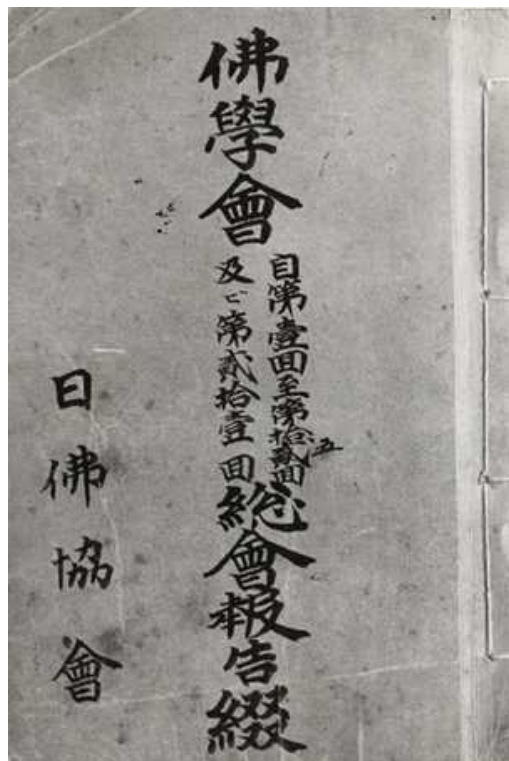 佛學會
自第壹回至第拾貳回
五
及ビ第貳拾壹回
總會報告綴
日佛協會